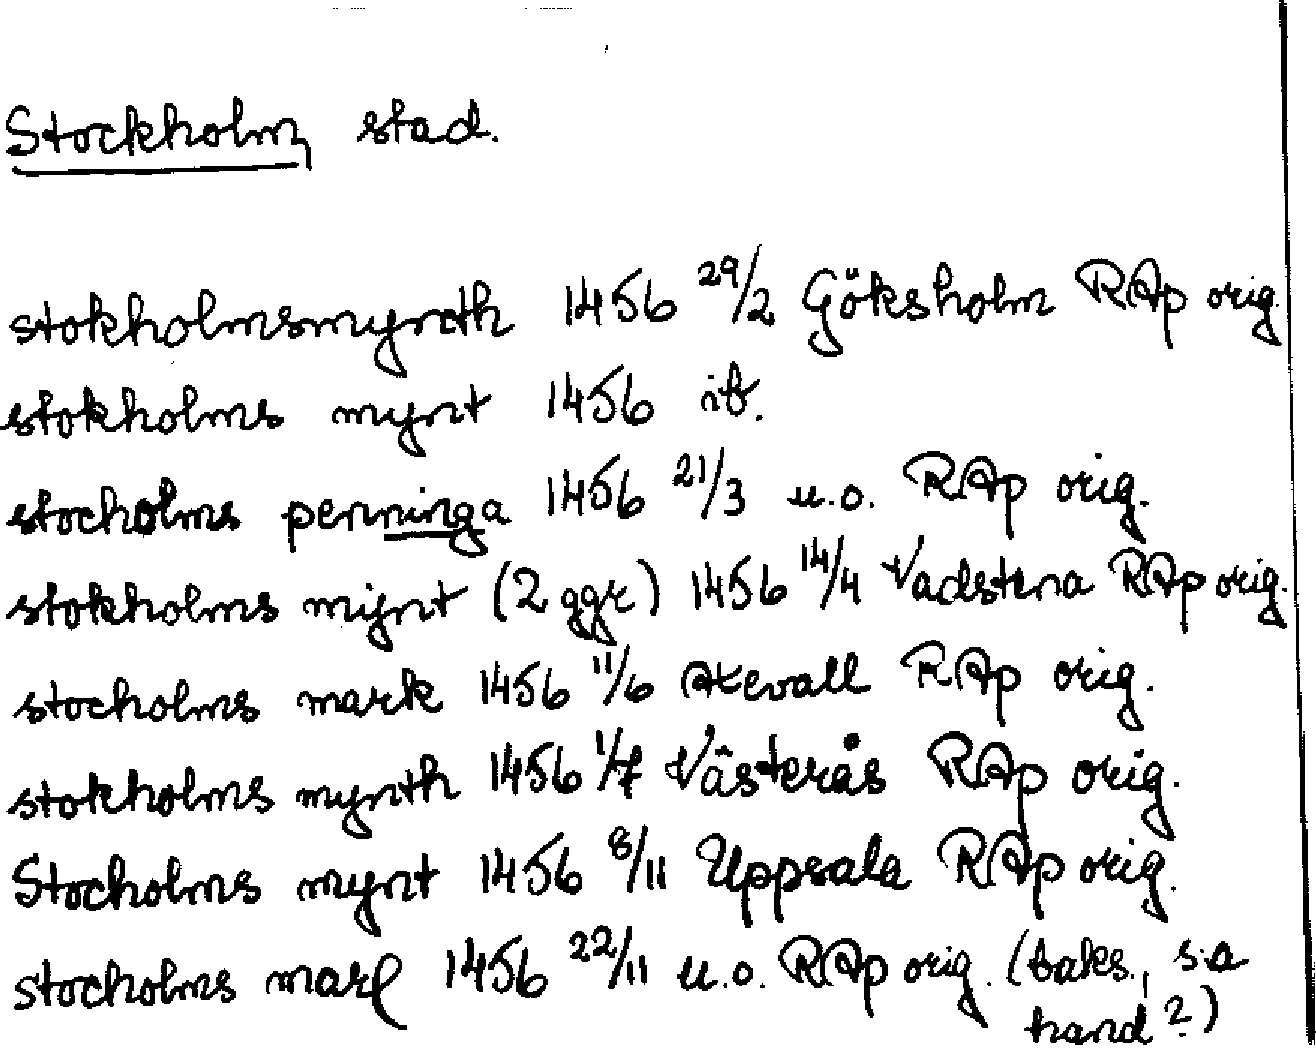 Stockholm, stad.
stokholmsmynth 1456 29/2 Göksholm RAp orig.
stokholms mynt 1456 ib.
stocholms penninga 1456 21/3 u.o. RAp orig.
stokholms mijnt (2 ggr) 1456 14/4 Vadstena RAp orig.
stocholms mark 1456 11/6 Axevall RAp orig.
stokholms mynth 1456 1/7 Västerås RAp orig.
Stocholms mynt 1456 8/11 Uppsala RAp orig.
stocholms marł 1456 22/11 u.o. RAp orig. (baks., s.a
hand?)